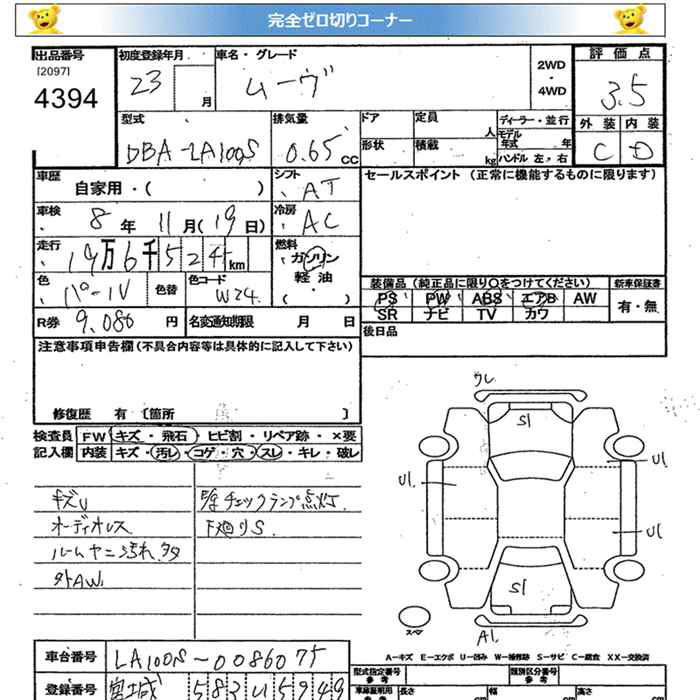 完全ゼロ切りコーナー
出品番号 初度登録年月 車名・グレード 評価点
[2097] 4394 23 月 ムーヴ 2WD・4WD 3.5
型式 排気量 ドア 定員 人 ディーラー・並行 外装 内装
DBA-LA100S 0.65 CC 形状 積載 kg モデル年式 年 ハンドル 左,右 C D
車歴 自家用・( ) シフト AT セールスポイント (正常に機能するものに限ります)
車検 8年 11月(19日) 冷房 AC
走行 19万6千524km 燃料 ガソリン 軽油 ( )
色 パール 色替 色コード W24. 装備品 (純正品に限り○をつけてください) 新車保証書
PS PW ABS エアB AW 有・無
SR ナビ TV カワ
R券 9,080 円 名変通知期限 月 日 後日品
注意事項申告欄(不具合内容等は具体的に記入して下さい)
修復歴 有 [箇所 ]
検査員記入欄 FW キズ・飛石・ヒビ割・リペア跡・×要
内装 キズ・汚レ・コゲ・穴・スレ・キレ・破レ
キズU
オーディオレス
ルームヤニ汚れ多
外AW
チェックランプ点灯.
下廻りS.
ワレ
S1
U1
U1
U1
S1
スペア
A1
A-キズ E-エクボ U-凹み W-補修跡 S-サビ C-腐食 XX-交換済
車台番号 LA100S-0086075
登録番号 宮城 583
型式指定番号 参考 類別区分番号 参考
車検証明用 参考 長さ cm 幅 cm 高さ cm